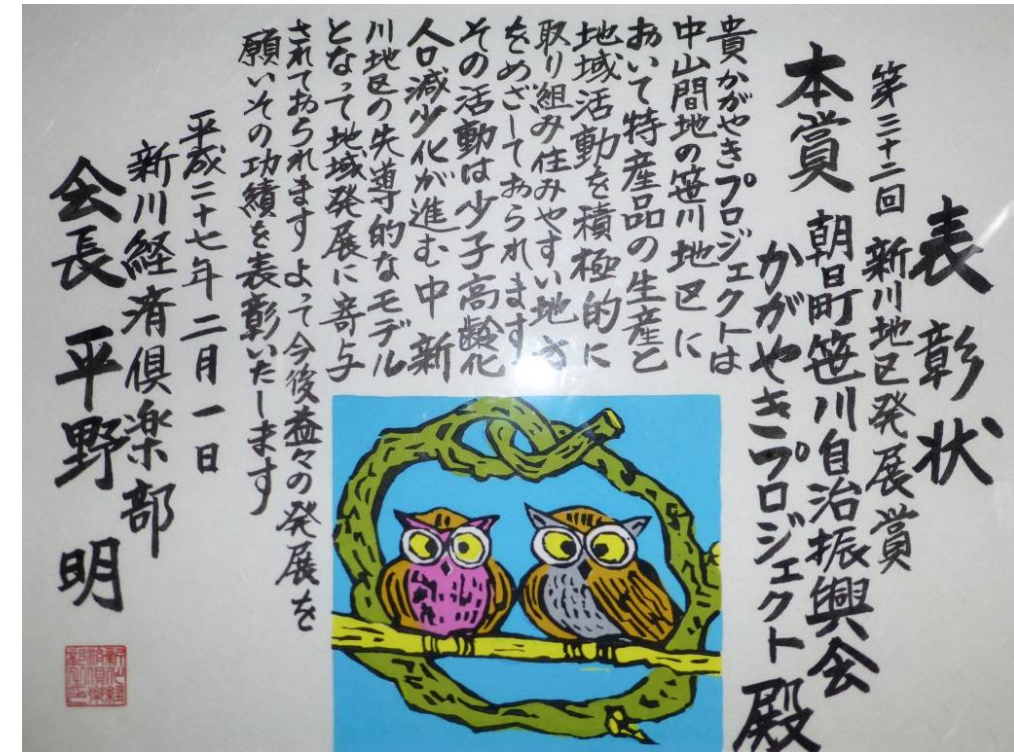 表彰状
第三十二回 新川地区発展賞
本賞 朝日町笹川自治振興会
かがやきプロジェクト 殿
貴かがやきプロジェクトは
中山間地の笹川地区に
おいて特産品の生産と
地域活動を積極的に
取り組み住みやすい地さ
をめざしておられます
その活動は少子高齢化
人口減少化が進む中 新
川地区の先導的なモデル
となって地域発展に寄与
されておられます よって今後益々の発展を
願いその功績を表彰いたします
平成二十七年二月一日
新川経済倶楽部
会長 平野 明